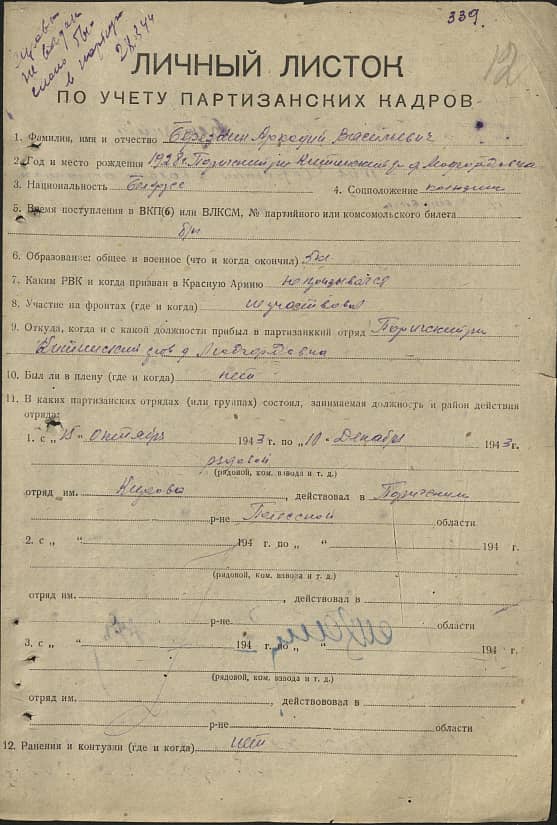 339.
12
28.3.44
ЛИЧНЫЙ ЛИСТОК
ПО УЧЕТУ ПАРТИЗАНСКИХ КАДРОВ
1. Фамилия, имя и отчество Аркадий Васильевич
2. Год и место рождения 1928 г. Паричский р-н
3. Национальность Белорус 4. Соцположение
5. Время поступления в ВКП(б) или ВЛКСМ, № партийного или комсомольского билета
б/п
6. Образование: общее и военное (что и когда окончил)
7. Каким РВК и когда призван в Красную Армию не призывался
8. Участие на фронтах (где и когда) не участвовал
9. Откуда, когда и с какой должности прибыл в партизанккий отряд Паричский р-н
10. Был ли в плену (где и когда) нет
11. В каких партизанских отрядах (или группах) состоял, занимаемая должность и район действия
отряда:
1. с „ 15 “ Октября 1943 г. по „ 10 “ Декабря 1943 г.
рядовой
(рядовой, ком. взвода и т. д.)
отряд им. Кирова, действовал в Паричский
р-не Полесской области
2. с „ “ 194 г. по „ “ 194 г.
(рядовой, ком. взвода и т. д.)
отряд им. , действовал в
р-не области
3. с „ “ 194 г. по „ “ 194 г.
(рядовой, ком. взвода и т. д.)
отряд им. , действововал в
р-не области
12. Ранения и контузии (где и когда) нет